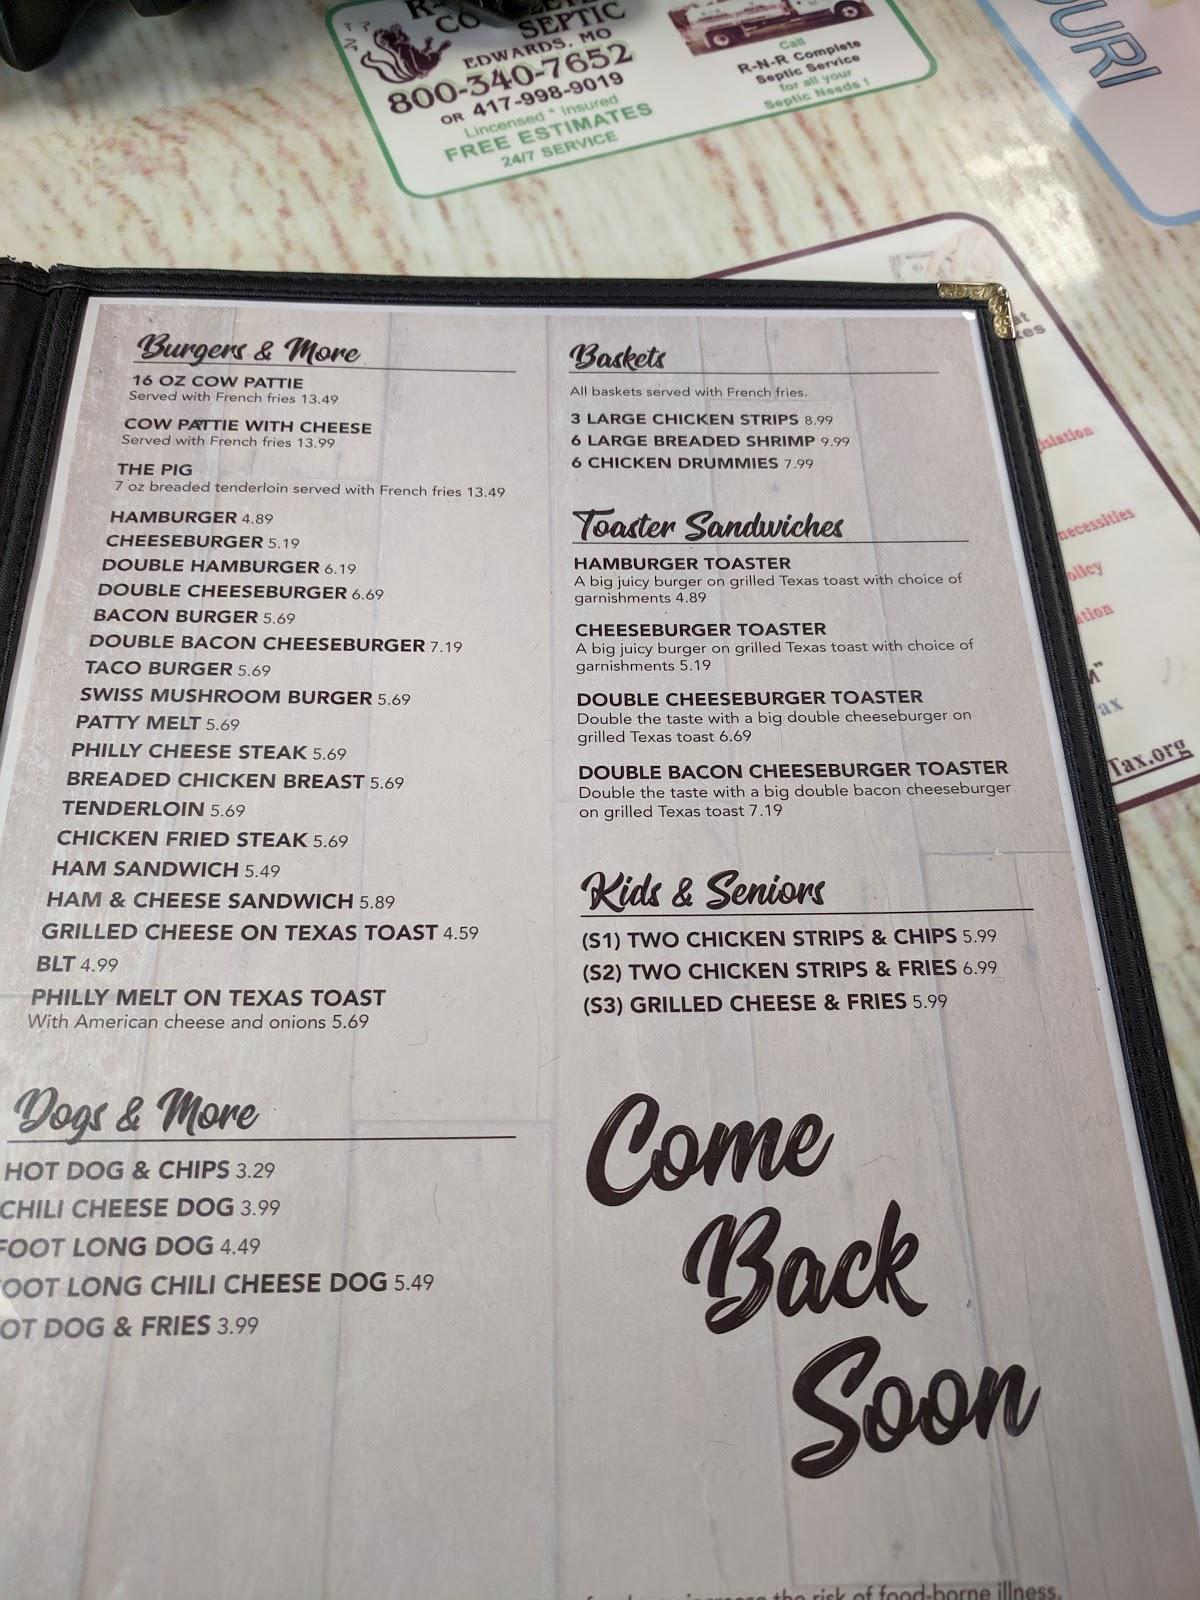 SEPTIC
EDWARDS, MO
800-340-7652
OR 417-998-9019
Lincensed * Insured
FREE ESTIMATES
24/7 SERVICE
Call
R-N-R Complete
Septic Service
for all your
Septic Needs !
Burgers & More
16 OZ COW PATTIE
Served with French fries 13.49
COW PATTIE WITH CHEESE
Served with French fries 13.99
THE PIG
7 oz breaded tenderloin served with French fries 13.49
HAMBURGER 4.89
CHEESEBURGER 5.19
DOUBLE HAMBURGER 6.19
DOUBLE CHEESEBURGER 6.69
BACON BURGER 5.69
DOUBLE BACON CHEESEBURGER 7.19
TACO BURGER 5.69
SWISS MUSHROOM BURGER 5.69
PATTY MELT 5.69
PHILLY CHEESE STEAK 5.69
BREADED CHICKEN BREAST 5.69
TENDERLOIN 5.69
CHICKEN FRIED STEAK 5.69
HAM SANDWICH 5.49
HAM & CHEESE SANDWICH 5.89
GRILLED CHEESE ON TEXAS TOAST 4.59
BLT 4.99
PHILLY MELT ON TEXAS TOAST
With American cheese and onions 5.69
Dogs & More
HOT DOG & CHIPS 3.29
CHILI CHEESE DOG 3.99
FOOT LONG DOG 4.49
OOT LONG CHILI CHEESE DOG 5.49
OT DOG & FRIES 3.99
Baskets
All baskets served with French fries.
3 LARGE CHICKEN STRIPS 8.99
6 LARGE BREADED SHRIMP 9.99
6 CHICKEN DRUMMIES 7.99
Toaster Sandwiches
HAMBURGER TOASTER
A big juicy burger on grilled Texas toast with choice of
garnishments 4.89
CHEESEBURGER TOASTER
A big juicy burger on grilled Texas toast with choice of
garnishments 5.19
DOUBLE CHEESEBURGER TOASTER
Double the taste with a big double cheeseburger on
grilled Texas toast 6.69
DOUBLE BACON CHEESEBURGER TOASTER
Double the taste with a big double bacon cheeseburger
on grilled Texas toast 7.19
Kids & Seniors
(S1) TWO CHICKEN STRIPS & CHIPS 5.99
(S2) TWO CHICKEN STRIPS & FRIES 6.99
(S3) GRILLED CHEESE & FRIES 5.99
Come
Back
Soon
the risk of food-borne illness.
necessities
Tax.org